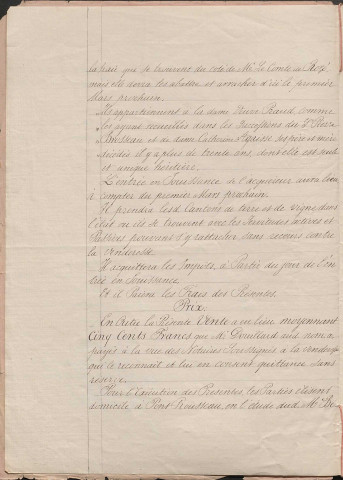 la haie qui se trouvent du coté de Mr Le Comte de
mais elle devra les abattre et arracher d'ici le premier
Mars prochain.
appartiennent à la dame Veuve Praud, comme
les ayant recueillis dans les Successions de
et de dame Catherine ses père et mère
décédés il y a plus de trente ans, dont elle est seule
et unique héritière.
L'entrée en Jouissance de l'acquéreur aura lieu
à compter du premier Mars prochain.
Il prendra les Cantons de terre et de vigne dans
l'état où ils se trouvent avec les Servitudes actives et
Passives pouvant s'y rattacher sans recours contre
la venderesse.
Il acquittera les Impôts, à Partir du jour de l'en-
trée en Jouissance.
Et il Paiera les Frais des Présentes.
Prix
En Outre la Présente Vente a eu lieu moyennant
Cinq Cents Francs que Mr Drouillard sus nommé a
payé à la vue des Notaires Soussignés à la venderesse
qui le reconnait et lui en consent quittance sans
réserve.
Pour l'Exécution des Présentes les Parties élisent
domicile à Pont Rousseau, en l'étude dud. Mr